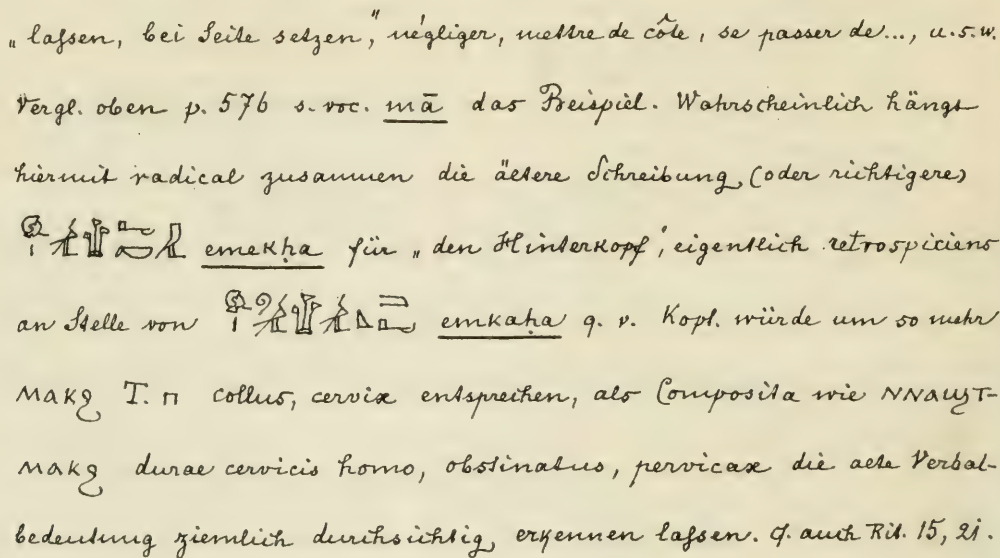 „lassen, bei Seite setzen“, négliger, mettre de côte, se passer de..., u.s.w.
Vergl. oben p. 576 s. voc. mā das Beispiel. Wahrscheinlich hängt
hiermit radical zusammen die ältere Schreibung (oder richtigere)
emekḥa für „den Hinterkopf“, eigentlich retrospiciens
an Stelle von emkaḥa q. v. Kopt. würde um so mehr
ⲙⲁⲕϩ T. ⲡ collus, cervix entsprechen, als Composita wie ⲛⲛⲁϣⲧ-
ⲙⲁⲕϩ durae cervicis homo, obstinatus, pervicax die alte Verbal-
bedeutung ziemlich durchsichtig erkennen lassen. cf. auch Rit. 15, 21.